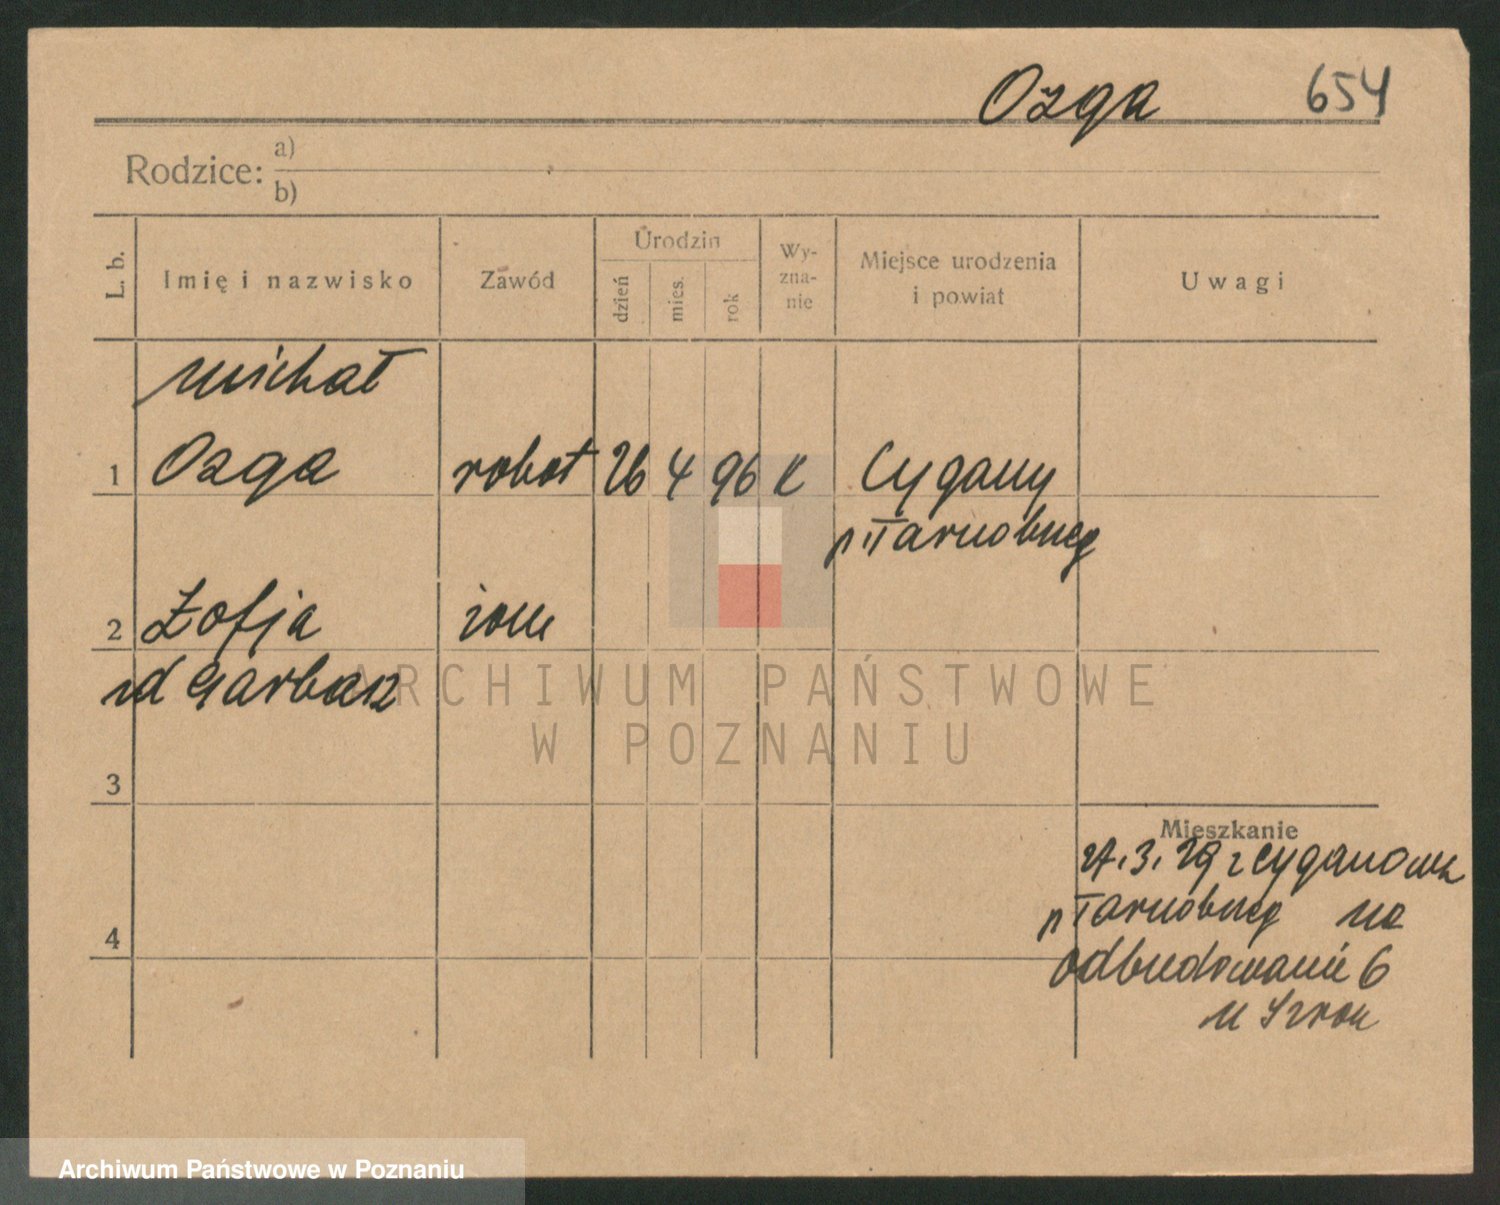 Ozga 654
Rodzice: a)
b)
L. b. Imię i nazwisko Zawód Urodzin dzień mies. rok Wy-zna-nie Miejsce urodzenia i powiat Uwagi
Michał
1 Ozga robot 26 4 96 k Cygany
p Tarnobrzeg
2 Zofja żona
zd Garbacz
ARCHIWUM PAŃSTWOWE
W POZNANIU
3
Mieszkanie
27.3.29 z Cyganowa
p Tarnobrzeg na
4
odbudowanie 6
u
Archiwum Państwowe w Poznaniu